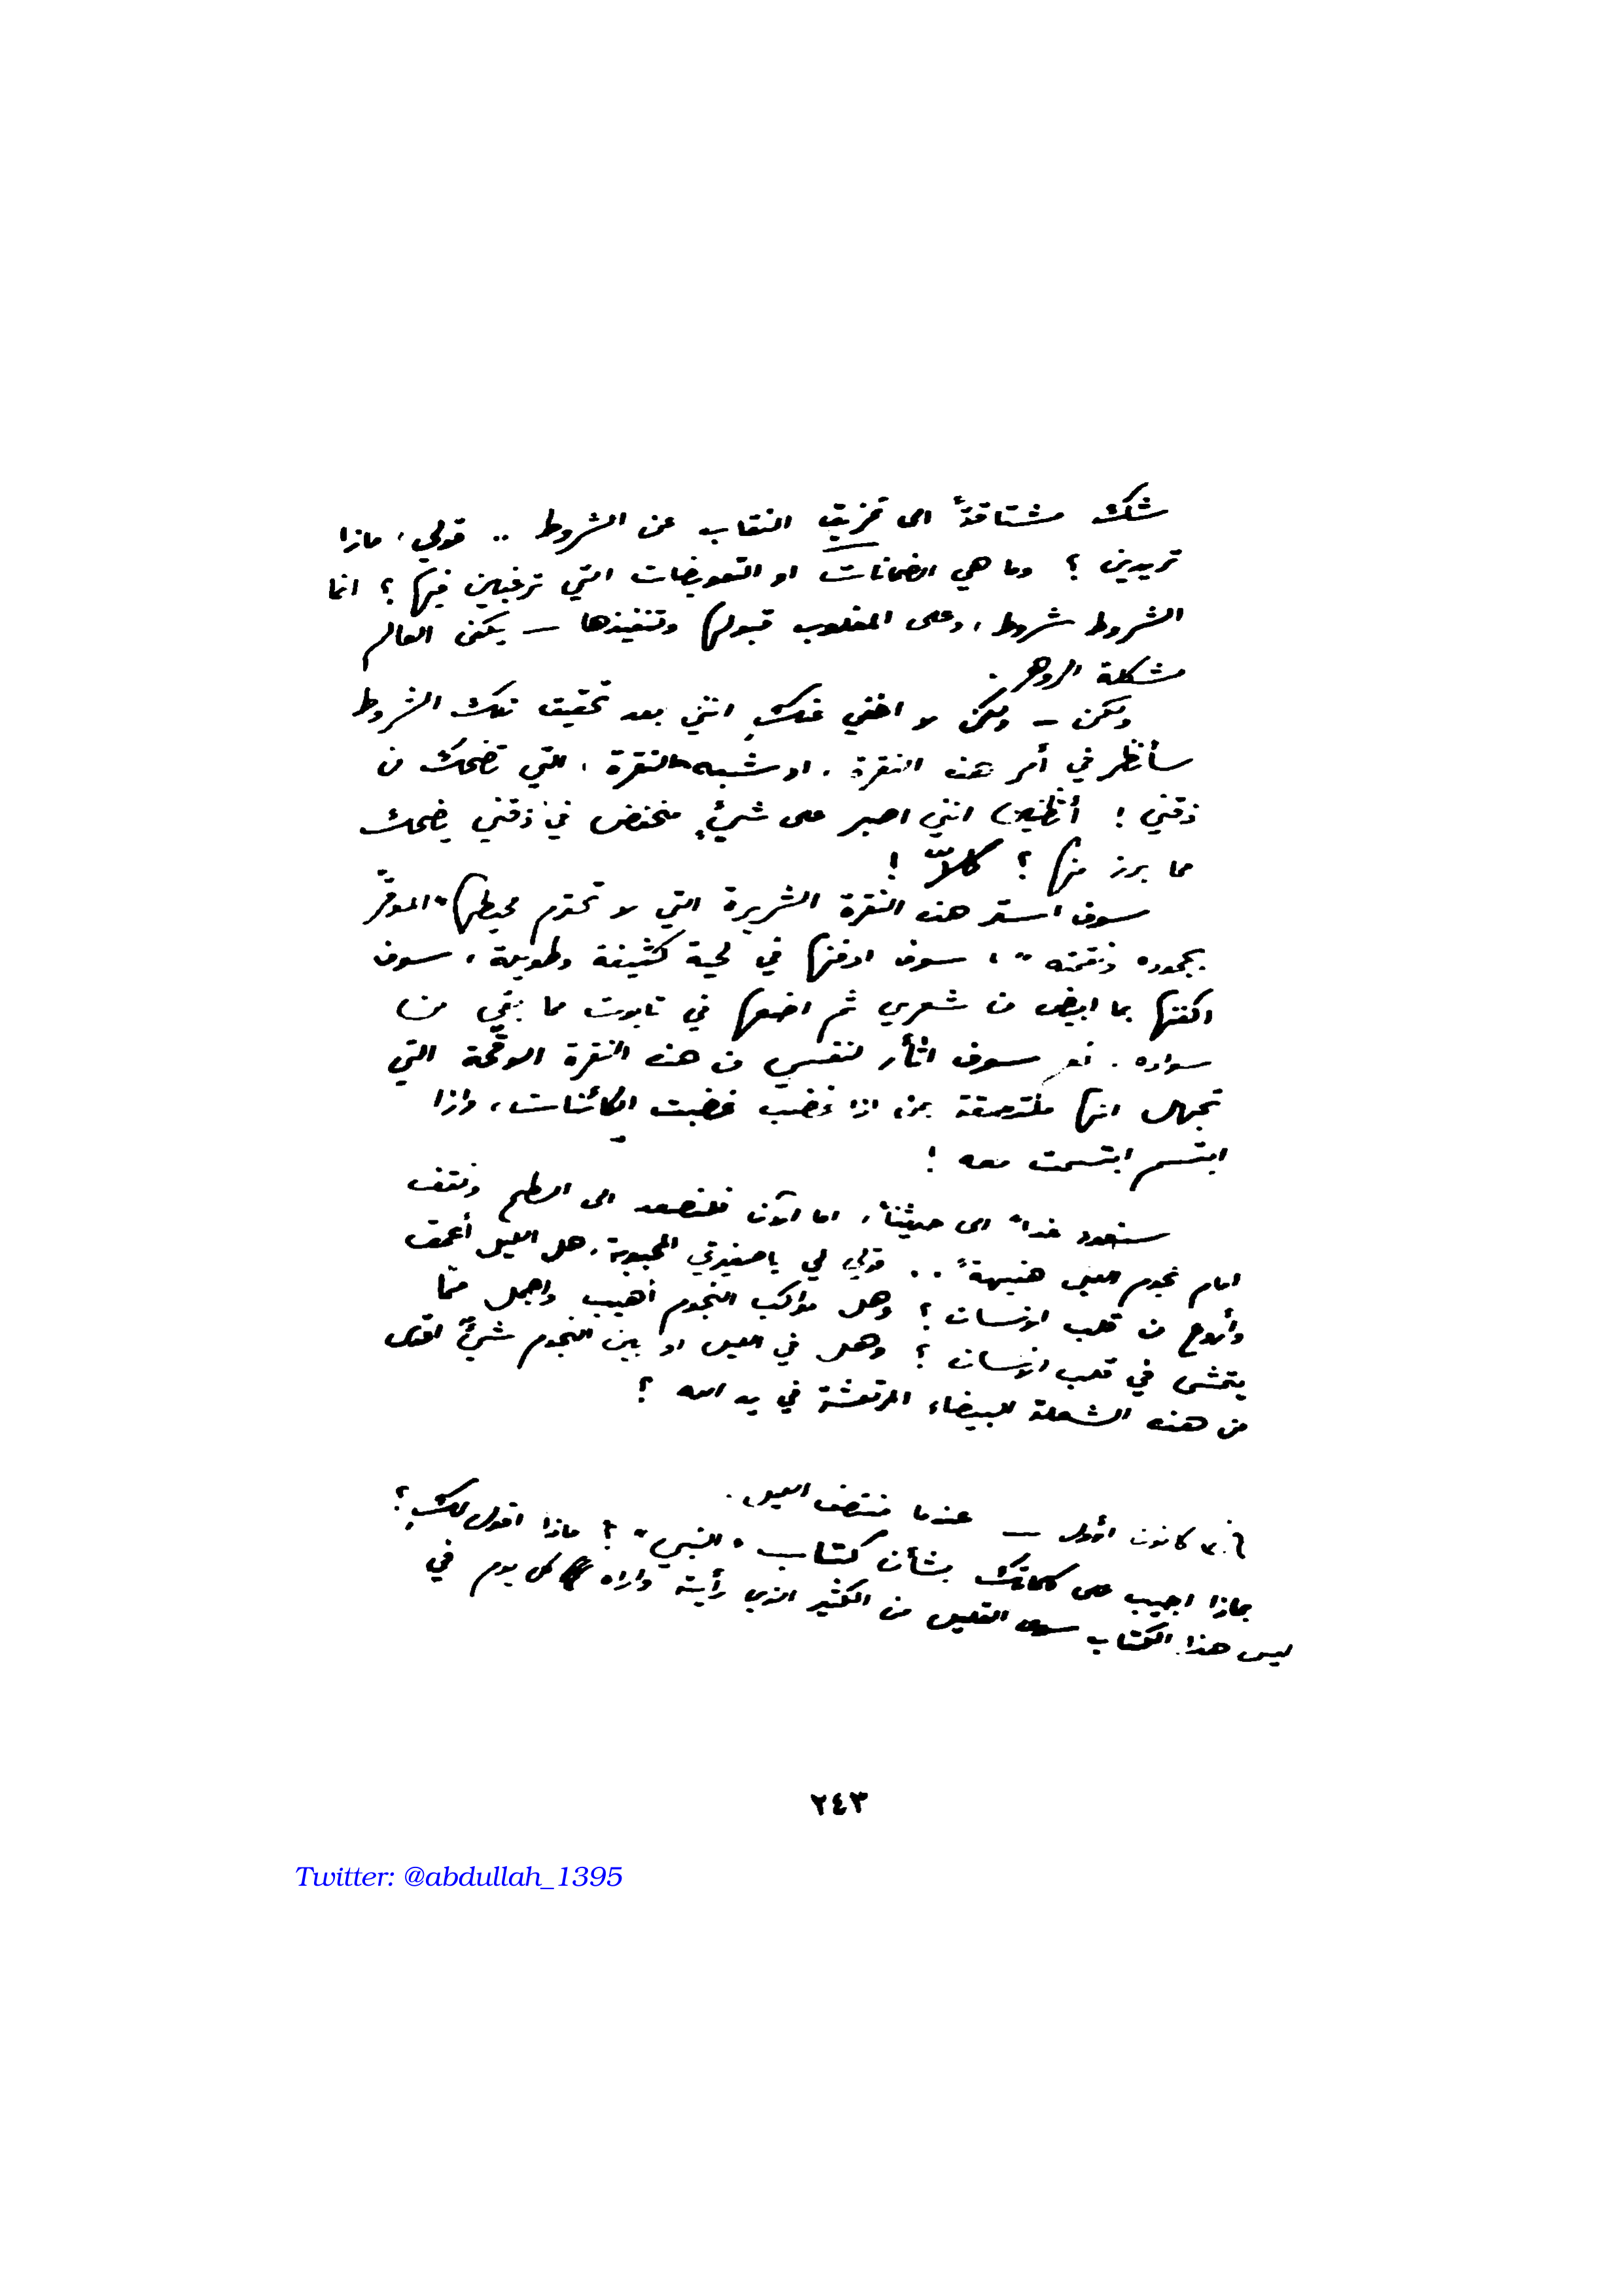 شك مشتاقةً الى تمزيق النقاب عن الشروط .. قولي، ماذا
تريدين ؟ وما هي الضمانات او التعويضات التي ترغبين فيها ؟ انما
الشروط شروط، وعلى المغلوب قبولها وتنفيذها –
العالم
مشكلة
ولكن – ولكن لا اخفي عنكِ انني بعد تحقيق تلك الشروط
سأنظر في أمر هذه النقرة، او شبه النقرة، التي تضحك من
ذقني ! أتظنين انني اصبر على شيءٍ منخفض في ذقني يضحك
مما برز منها ؟ كلاّ !
سوف استر هذه النقرة الشريرة التي لا تحترم محيطها "الموقّر
بجموده ونقمته"، سوف ادفنها في لحية كثيفة وطويلة، سوف
اكفنها بما ابيض من شعري ثم اضعها في تابوت مما بقي من
سواده. نعم سوف اثأر لنفسي من هذه النقرة الوقحة التي
تجهل انها ملتصقة بمن اذا غضب غضبت الكائنات، واذا
ابتسم ابتسمت معه !
سنعود غداً الى حديثنا، اما الآن فلنصعد الى السطح ونقف
امام نجوم الليل هنيهةً .. قولي لي يا صغيرتي المحبوبة، هل الليل أعمق
وأروع من قلب الانسان ؟ وهل مواكب النجوم أهيب واجمل ممّا
يتمشى في قلب الانسان ؟ وهل في الليل او بين النجوم شيءٌ اقدس
من هذه الشعلة البيضاء المرتعشة في يد الله ؟
كانون اوّل – عندما منتصف الليل.
بماذا اجيب على كلماتك بشأن كتاب "النبي" ؟ ماذا اقول لكِ ؟
ليس هذا الكتاب سوى القليل من الكثير الذي رأيته واراه كل يوم في
٢٤٣
Twitter: @abdullah_1395